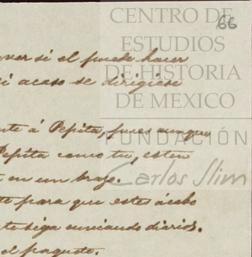 CENTRO DE
ESTUDIOS
DE HISTORIA
DE MEXICO
FUNDACIÓN
Carlos Slim
66
ver si el puede hacer
si acaso se dirigiese
á Pepita, pues aunque
Pepita como tu, esten
en un brazo.
para que estes ácabo
siga enviando diarios.
el paquete.